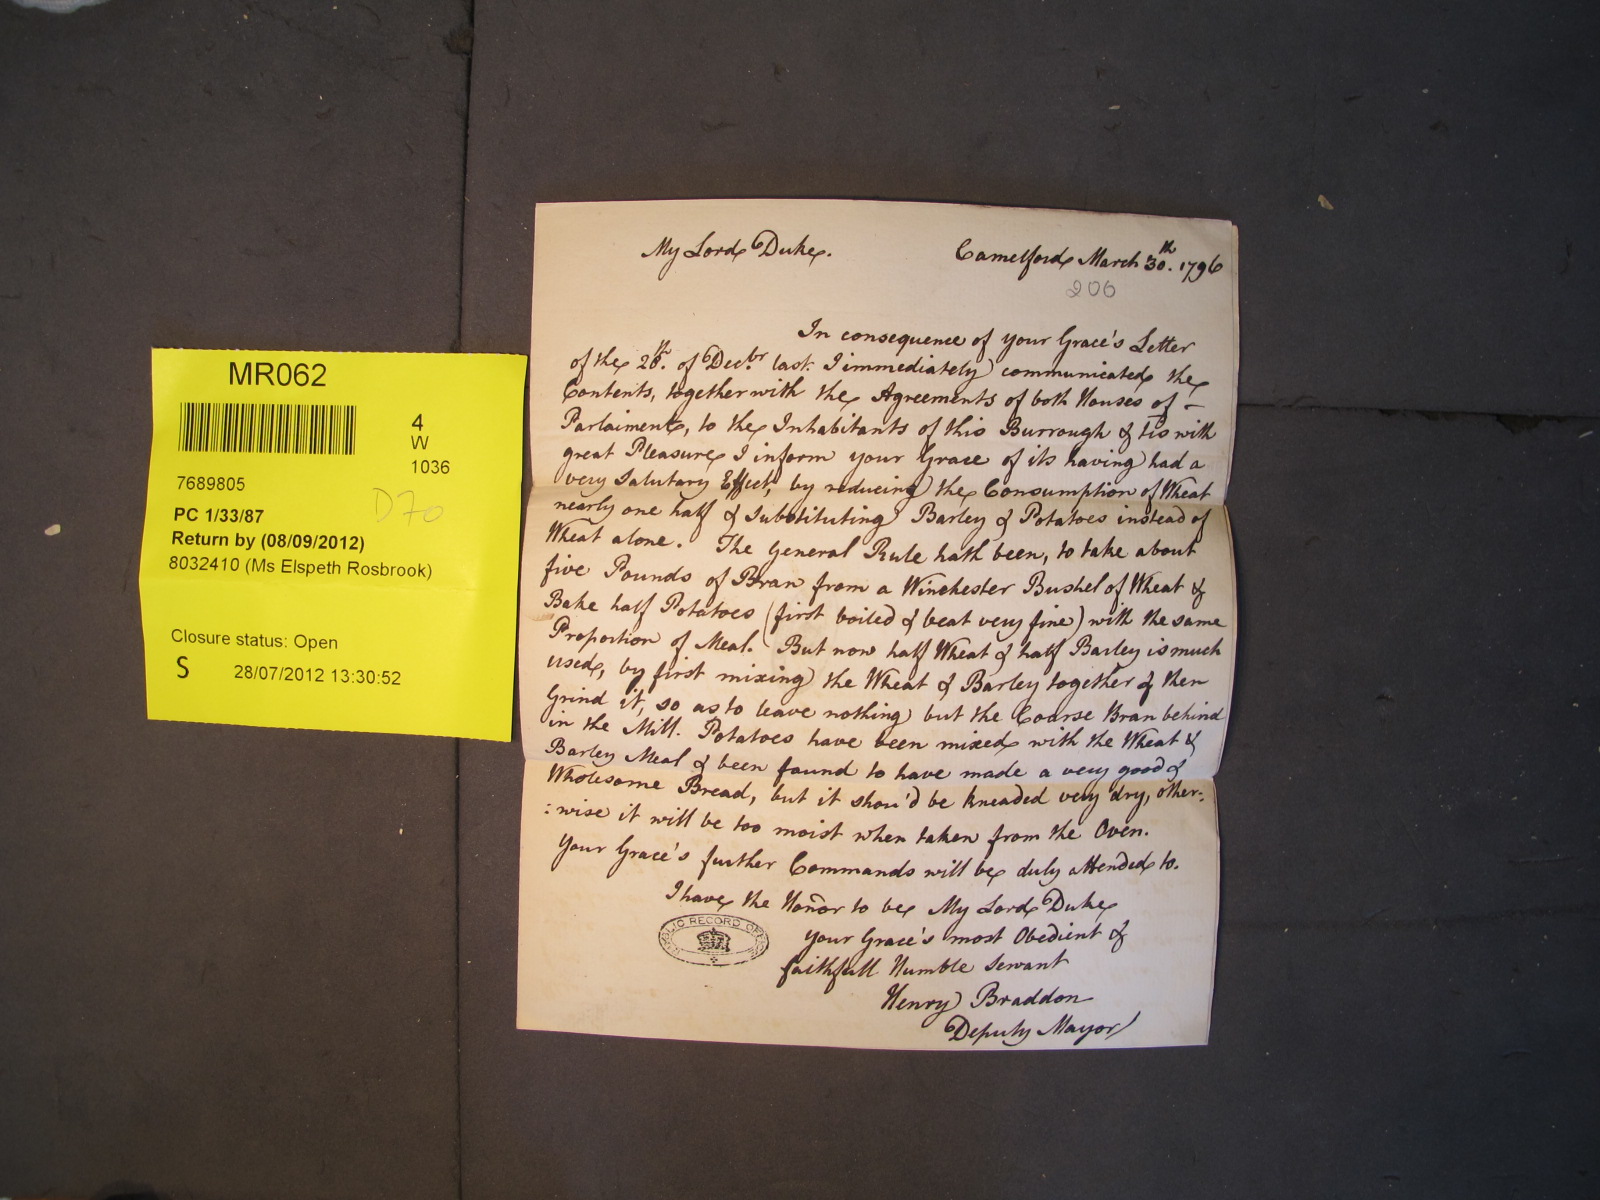 MR062
4
W
1036
7689805
D70
PC 1/33/87
Return by (08/09/2012)
8032410 (Ms Elspeth Rosbrook)
Closure status: Open
S 28/07/2012 13:30:52
My Lord Duke. Camelford March 30th. 1796
206
In consequence of your Grace's Letter
of the 28th. of Decbr. last. I immediately communicated the
Contents, together with the Agreements of both Houses of -
Parlaiment, to the Inhabitants of this Burrough & tis with
great Pleasure I inform your Grace of its having had a
very Salutary Effect, by reducing the Consumption of Wheat
nearly one half & Substituting Barley & Potatoes instead of
Wheat alone. The General Rule hath been, to take about
five Pounds of Bran from a Winchester Bushel of Wheat &
Bake half Potatoes (first boiled & beat very fine) with the same
Proportion of Meal. But now half Wheat & half Barley is much
used, by first mixing the Wheat & Barley together & then
Grind it, so as to leave nothing but the Coarse Bran behind
in the Mill. Potatoes have been mixed with the Wheat &
Barley Meal & been found to have made a very good &
Wholesome Bread, but it shou'd be kneaded very dry, other:
:wise it will be too moist when taken from the Oven.
Your Grace's further Commands will be duly attended to.
I have the Honor to be My Lord Duke
Your Grace's most Obedient &
faithfull Humble Servant
Henry Braddon
Deputy Mayor
PUBLIC RECORD OFFICE